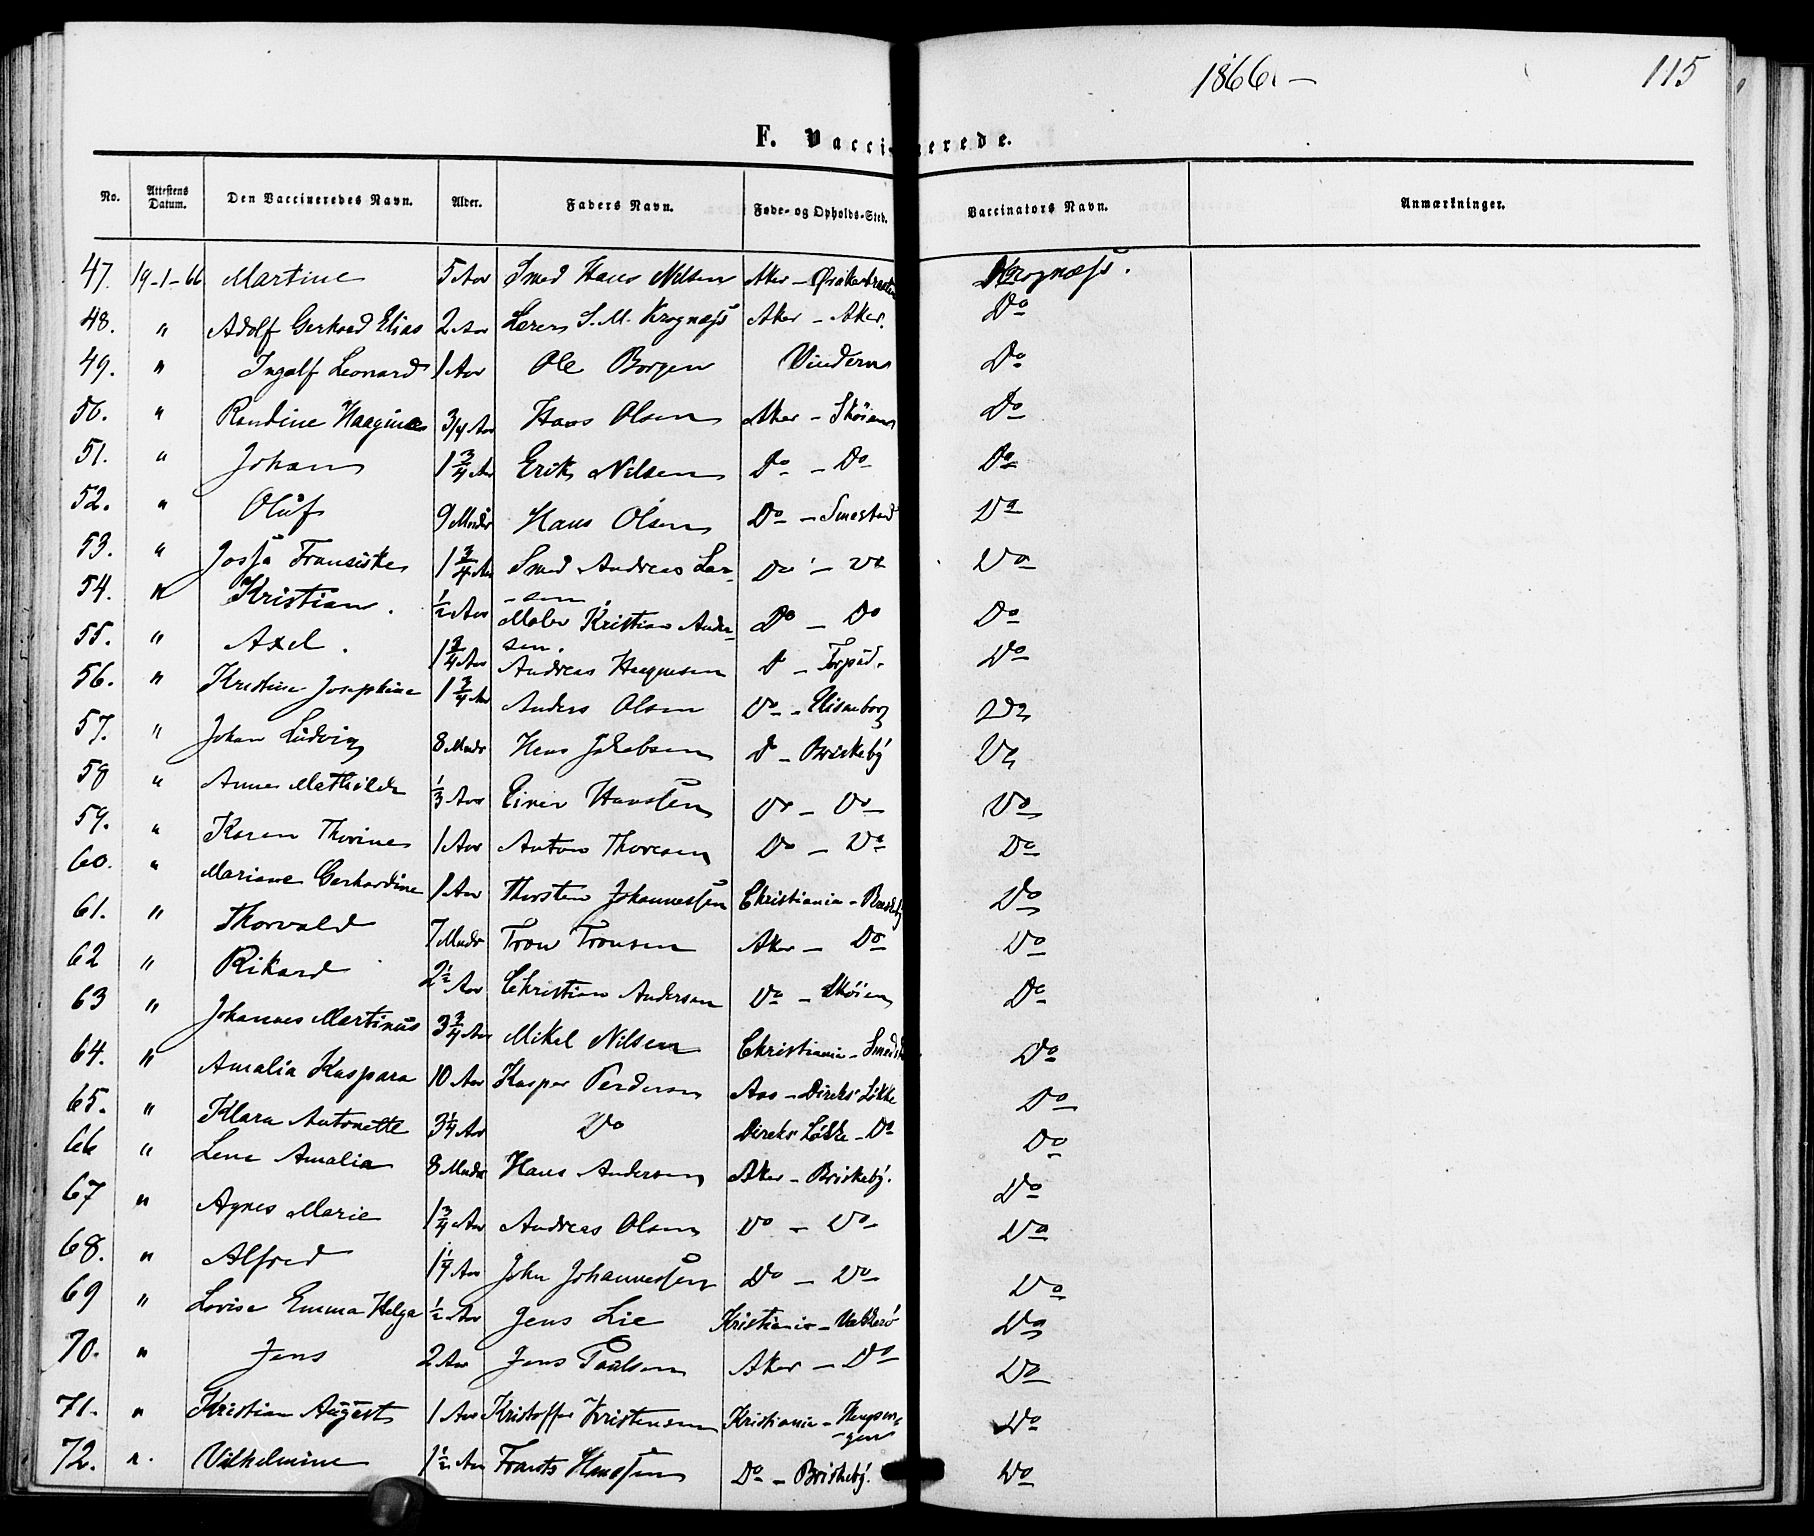 1866. —
115
F. Vaccinerede.
No. Attestens Datum. Den Vaccineredes Navn. Alder. Faders Navn. Føde- og Opholds-Sted. Vaccinators Navn. Anmærkninger.
47. 19-1-66 Martine 5 Aar Smed Hans Nilsen Aker - Krognæss.
48. " Adolf Gerhard Elias 2 Aar Lærer S. M. Krognæss Aker - Aker. Do
49. " Ingolf Leonard 1 Aar Ole Borgen Vindern Do
50. " Randine Haagine 3/4 Aar Hans Olsen Aker - Skøien Do
51. " Johan 1 3/4 Aar Erik Nilsen Do - Do Do
52. " Oluf 9 Mndr Hans Olsen Do - Smestad Do
53. " Fransiska 1 3/4 Aar Smed Andreas Lar-
-sen Do - Do Do
54. " Kristian. 1/2 Aar Maler Kristian Ander-
sen. Do - Do Do
55. " Axel. 1 3/4 Aar Andreas D - Do
56. " Kristine Josephine 1 3/4 Aar Anders Olsen Do - Elisenborg Do
57. " Johan Ludvig 8 Mndr Hans Jakobsen D - Briskeby Do
58 " Anne Mathilde 1/3 Aar Einer Hanssen Do - Do Do
59. " Karen Thorine 1 Aar Anton Thoresen Do - Do Do
60. " Mariane Gerhardine 1 Aar Thorsten Johannessen Christiania - Do
61. " Thorvald 7 Mndr Tron Tronsen Aker - Do Do
62 " Rikard 2 1/2 Aar Christian Andersen Do - Skøien Do
63 " Johannes Martinus 3 3/4 Aar Mikel Nilsen Christiania - Do
64. " Amalia Kaspara 10 Aar Kasper Pedersen Aas - Direks Løkke Do
65. " Klara Antonette 3 1/4 Aar Do Direks Løkke - Do Do
66 " Lene Amalia 8 Mndr Hans Andersen Aker - Briskeby. Do
67 " Agnes Marie 1 3/4 Aar Andreas Olsen Do - Do Do
68. " Alfred 1 1/4 Aar John Johannessen Do - Do Do
69 " Lovise Emma Helga 1/2 Aar Jens Lie Kristiania - Vækkerø Do
70. " Jens 2 Aar Jens Paulsen Aker - Do Do
71. " Kristian August 1 Aar Kristoffer Kristensen Kristiania - Do
72. " Vilhelmine 1 1/2 Aar Frants Hanssen Do - Briskeby. Do